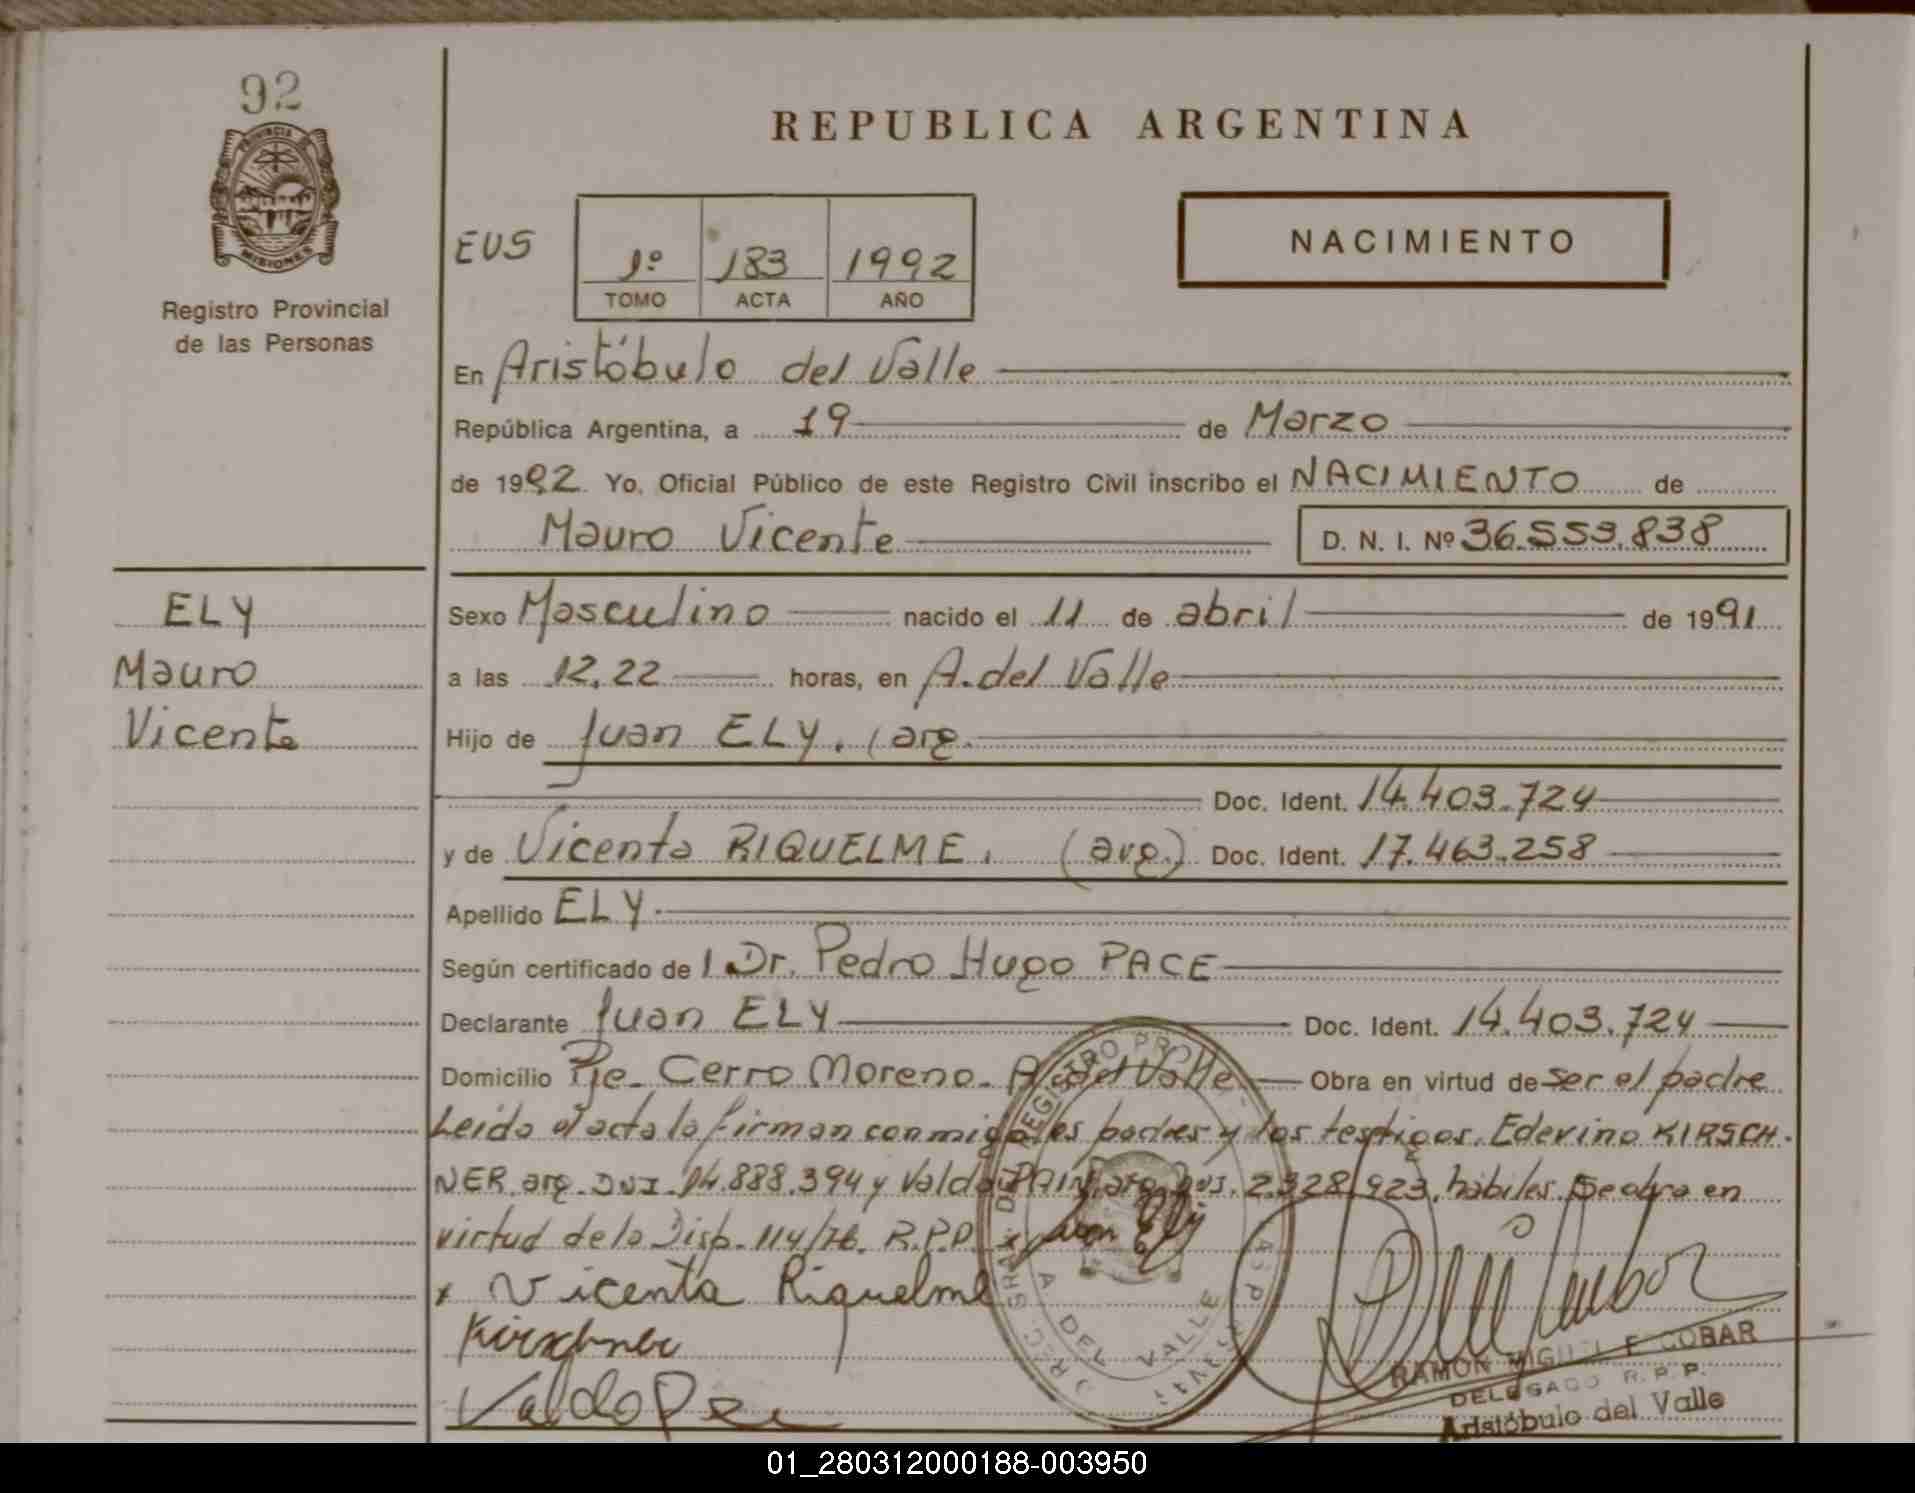 92
PROVINCIA
MISIONES
Registro Provincial
de las Personas
REPUBLICA ARGENTINA
EUS
1º 183 1992
TOMO ACTA AÑO
NACIMIENTO
En Aristóbulo del Valle
República Argentina, a 19 de Marzo
de 1992 Yo, Oficial Público de este Registro Civil inscribo el NACIMIENTO de
Mauro Vicente D. N. I. Nº 36.553.838
ELY
Mauro
Vicente
Sexo Masculino nacido el 11 de abril de 1991
a las 12.22 horas, en A. del Valle
Hijo de Juan ELY. (arg.
Doc. Ident. 14.403.724
y de Vicenta RIQUELME. (arg.) Doc. Ident. 17.463.258
Apellido ELY
Según certificado de l Dr. Pedro Hugo PACE
Declarante Juan ELY Doc. Ident. 14.403.724
Domicilio Pje. Cerro Moreno. A. del Valle Obra en virtud de ser el padre
Leída el acta la firman conmigo los padres y los testigos. Ederino KIRSCH-
NER. arg. DNI. 14.888.394 y Valdo arg. 2.328.923, hábiles. Se abra en
virtud de la Disp. 114/76. R.P.P. x Juan Ely
x Vicenta Riquelme
Kirschner
Valdo
A DEL VALLE
RAMON MIGUEL ESCOBAR
DELEGADO R. P. P.
Aristóbulo del Valle
01_280312000188-003950